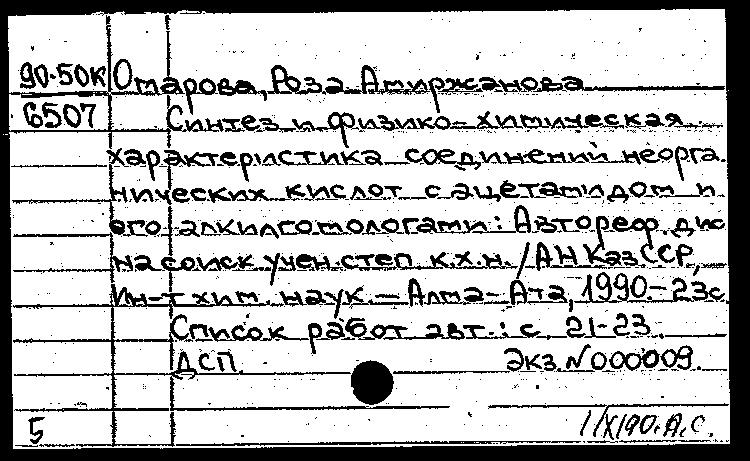 90-50К Омарова, Роза Амиржановна
6507 Синтез и физико-химическая
характеристика соединений неорга
нических кислот с ацетамидом и
его алкилгомологами: Автореф. дис
на соиск учен. степ. к.х.н. /АН КазССР,
Ин-т хим. наук. — Алма-Ата, 1990.-23с
Список работ авт.: с. 21-23.
ДСП. Экз. N000009.
5 1/X190. А.С.